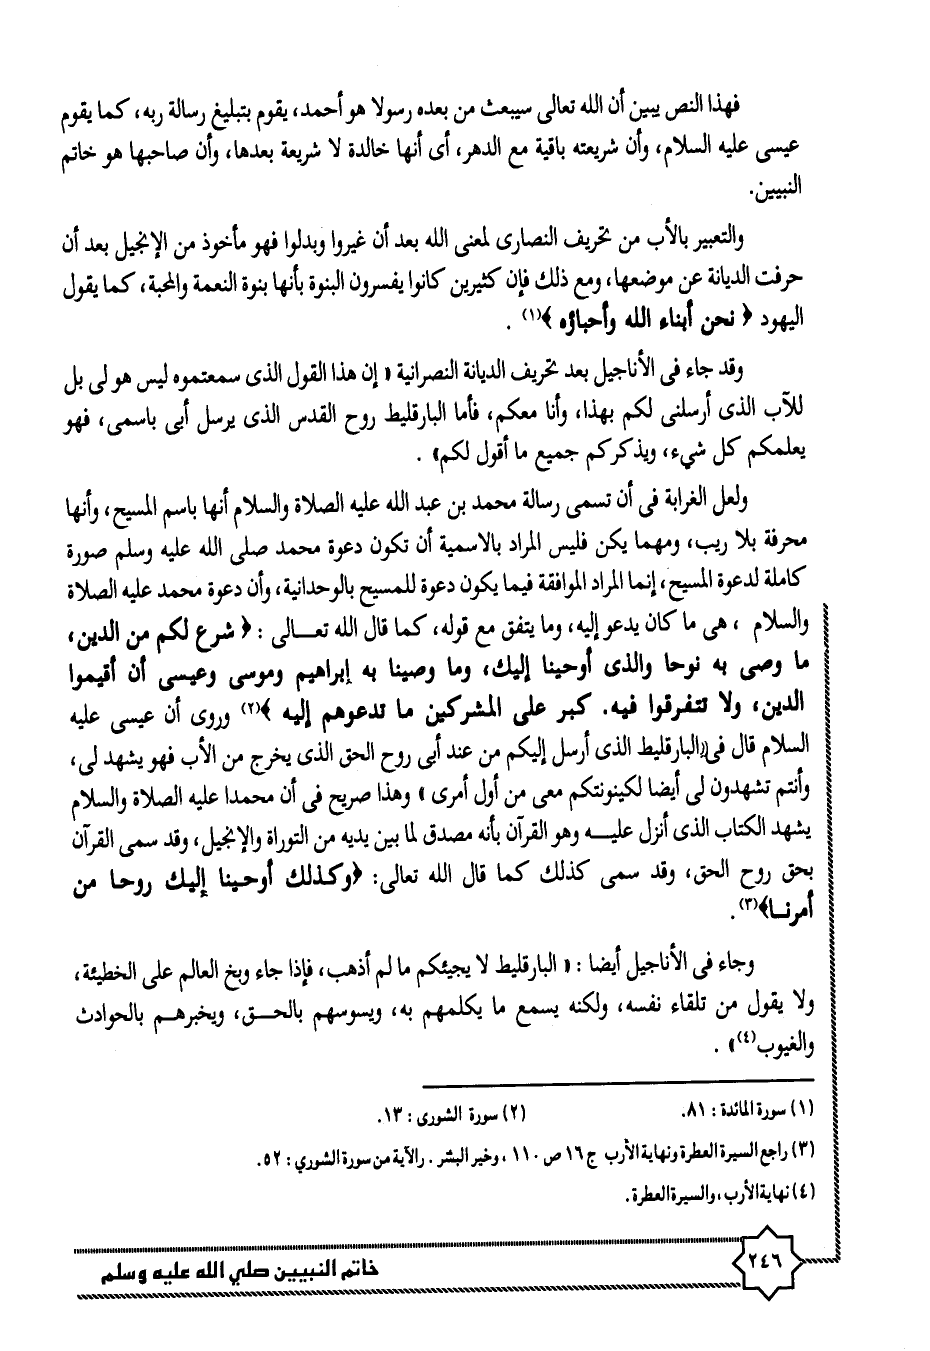 فهذا النص يبين أن الله تعالى سيبعث من بعده رسولا هو أحمد، يقوم بتبليغ رسالة ربه، كما يقوم
عيسى عليه السلام، وأن شريعته باقية مع الدهر، أى أنها خالدة لا شريعة بعدها، وأن صاحبها هو خاتم
النبيين.
والتعبير بالأب من تحريف النصارى لمعنى الله بعد أن غيروا وبدلوا فهو مأخوذ من الإنجيل بعد أن
حرفت الديانة عن موضعها، ومع ذلك فإن كثيرين كانوا يفسرون البنوة بأنها بنوة النعمة والمحبة، كما يقول
اليهود ﴿ نحن أبناء الله وأحباؤه ﴾(١) .
وقد جاء فى الأناجيل بعد تحريف الديانة النصرانية « إن هذا القول الذى سمعتموه ليس هو لى بل
للآب الذى أرسلنى لكم بهذا، وأنا معكم، فأما البارقليط روح القدس الذى يرسل أبى باسمى، فهو
يعلمكم كل شيء، ويذكركم جميع ما أقول لكم» .
ولعل الغرابة فى أن تسمى رسالة محمد بن عبد الله عليه الصلاة والسلام أنها باسم المسيح، وأنها
محرفة بلا ريب، ومهما يكن فليس المراد بالاسمية أن تكون دعوة محمد صلى الله عليه وسلم صورة
كاملة لدعوة المسيح، إنما المراد الموافقة فيما يكون دعوة للمسيح بالوحدانية، وأن دعوة محمد عليه الصلاة
والسلام ، هى ما كان يدعو إليه، وما يتفق مع قوله، كما قال الله تعـــالى : ﴿ شرع لكم من الدين،
ما وصى به نوحا والذى أوحينا إليك، وما وصينا به إبراهيم وموسى وعيسى أن أقيموا
الدين، ولا تتفرقوا فيه. كبر على المشركين ما تدعوهم إليه ﴾(٢) وروى أن عيسى عليه
السلام قال فى«البارقليط الذى أرسل إليكم من عند أبى روح الحق الذى يخرج من الأب فهو يشهد لى،
وأنتم تشهدون لى أيضا لكينونتكم معى من أول أمرى » وهذا صريح فى أن محمدا عليه الصلاة والسلام
يشهد الكتاب الذى أنزل عليـــه وهو القرآن بأنه مصدق لما بين يديه من التوراة والإنجيل، وقد سمى القرآن
بحق روح الحق، وقد سمى كذلك كما قال الله تعالى: ﴿وكـذلك أوحـينا إليك روحـا من
أمرنـا﴾(٣).
وجاء فى الأناجيل أيضا : « البارقليط لا يجيئكم ما لم أذهب، فإذا جاء وبخ العالم على الخطيئة،
ولا يقول من تلقاء نفسه، ولكنه يسمع ما يكلمهم به، ويسوسهم بالحـــق، ويخبرهـــم بالحوادث
والغيوب(٤)» .
(١) سورة المائدة : ٨١.
(٢) سورة الشورى : ١٣.
(٣) راجع السيرة العطرة ونهاية الأرب ج١٦ ص ١١٠ ، وخير البشر . والآية من سورة الشوري : ٥٢.
(٤) نهاية الأرب، والسيرة العطرة.
٢٤٦
خاتم النبيين صلي الله عليه وسلم